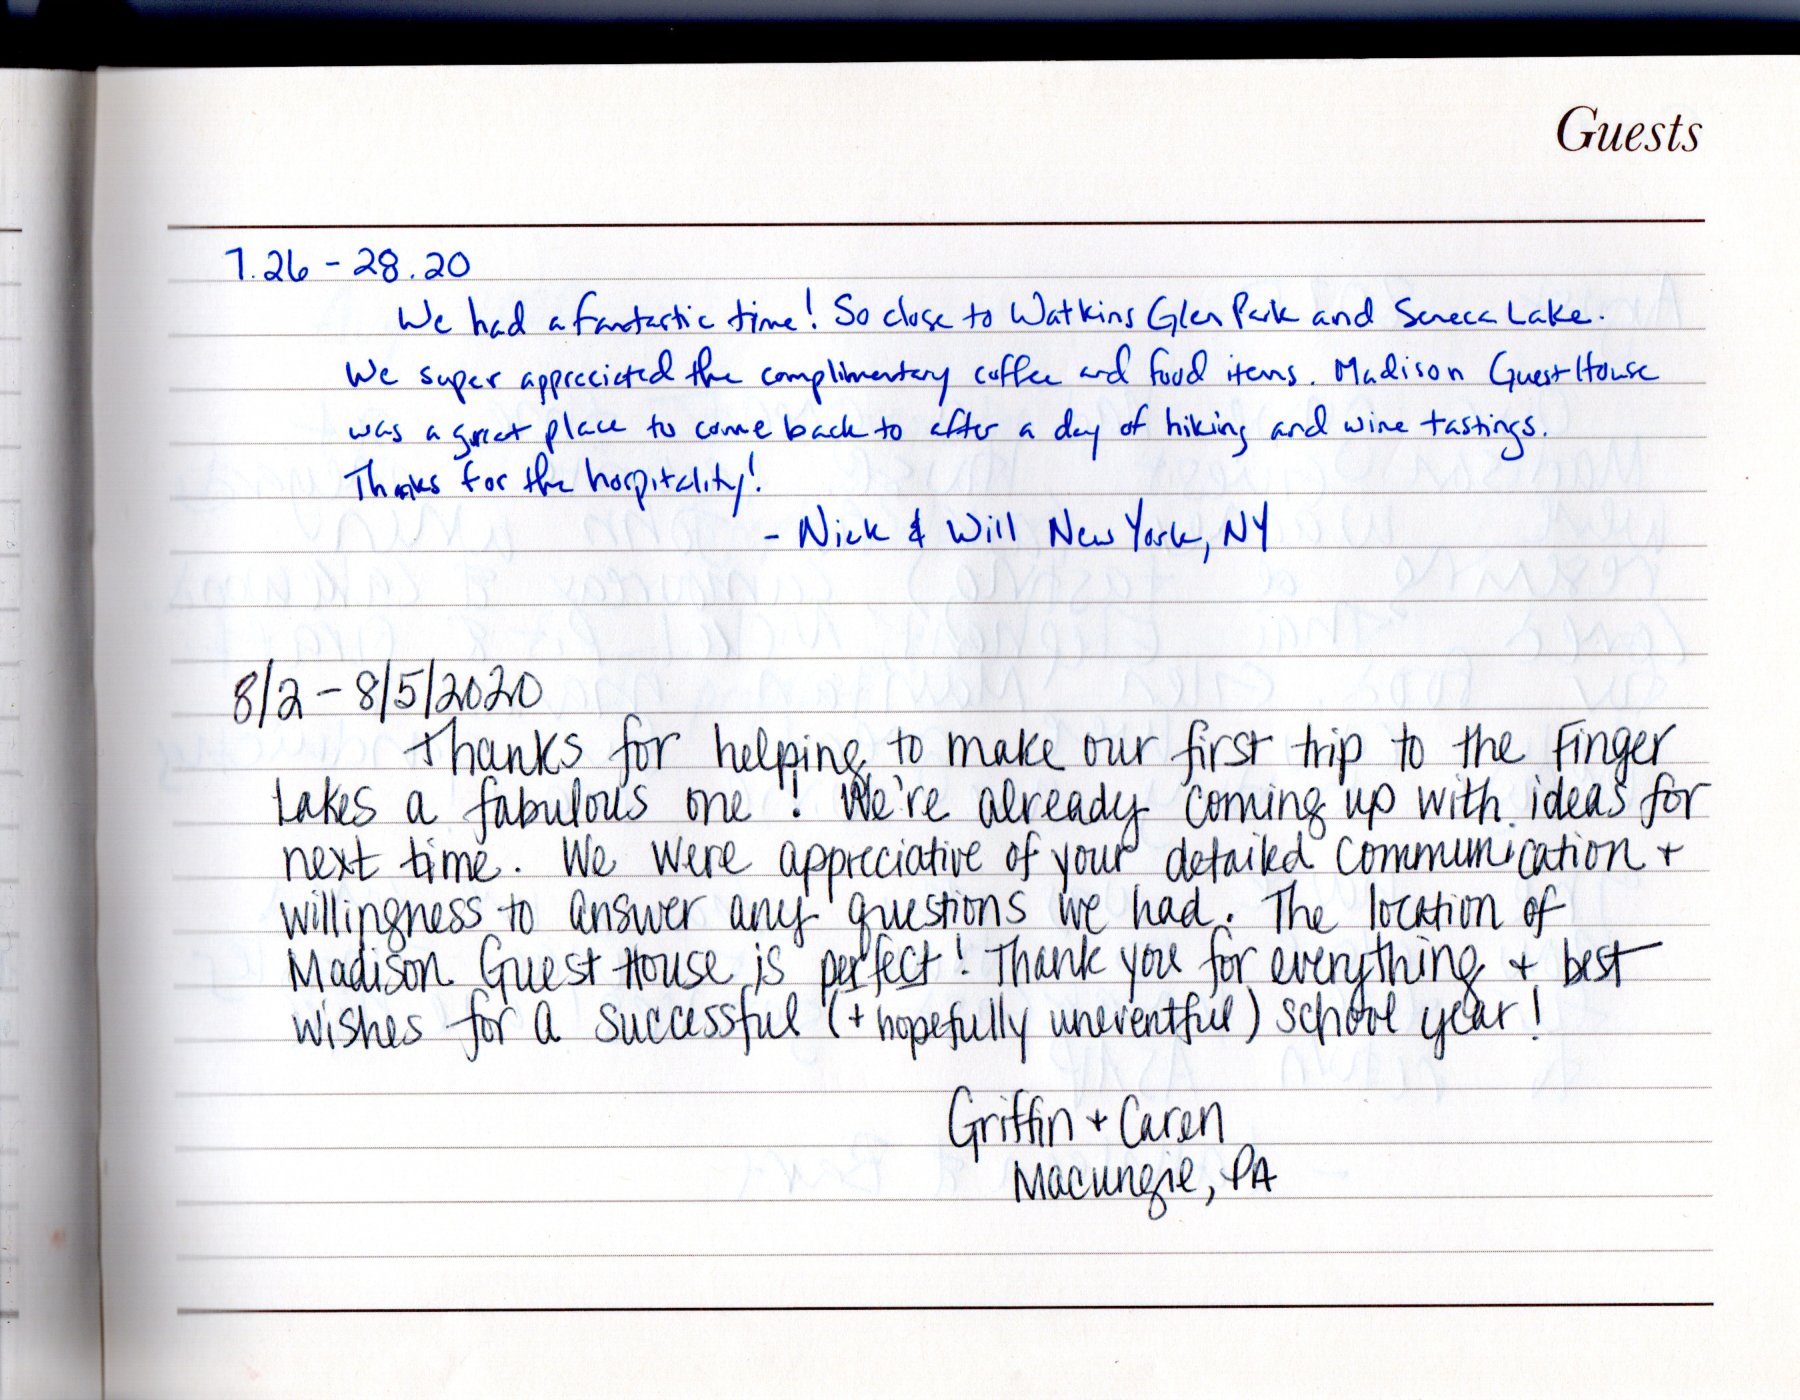 Guests
7.26 - 28.20
We had a fantastic time! So close to Watkins Glen Park and Seneca Lake.
We super appreciated the complimentary coffee and food items. Madison Guest House
was a great place to come back to after a day of hiking and wine tastings.
Thanks for the hospitality!
- Nick & Will New York, NY
8/2 - 8/5/2020
Thanks for helping to make our first trip to the Finger
Lakes a fabulous one! We're already coming up with ideas for
next time. We were appreciative of your detailed communication +
willingness to answer any questions we had. The location of
Madison Guest House is perfect! Thank you for everything + best
wishes for a successful (+ hopefully uneventful) school year!
Griffin + Caren
Macungie, PA